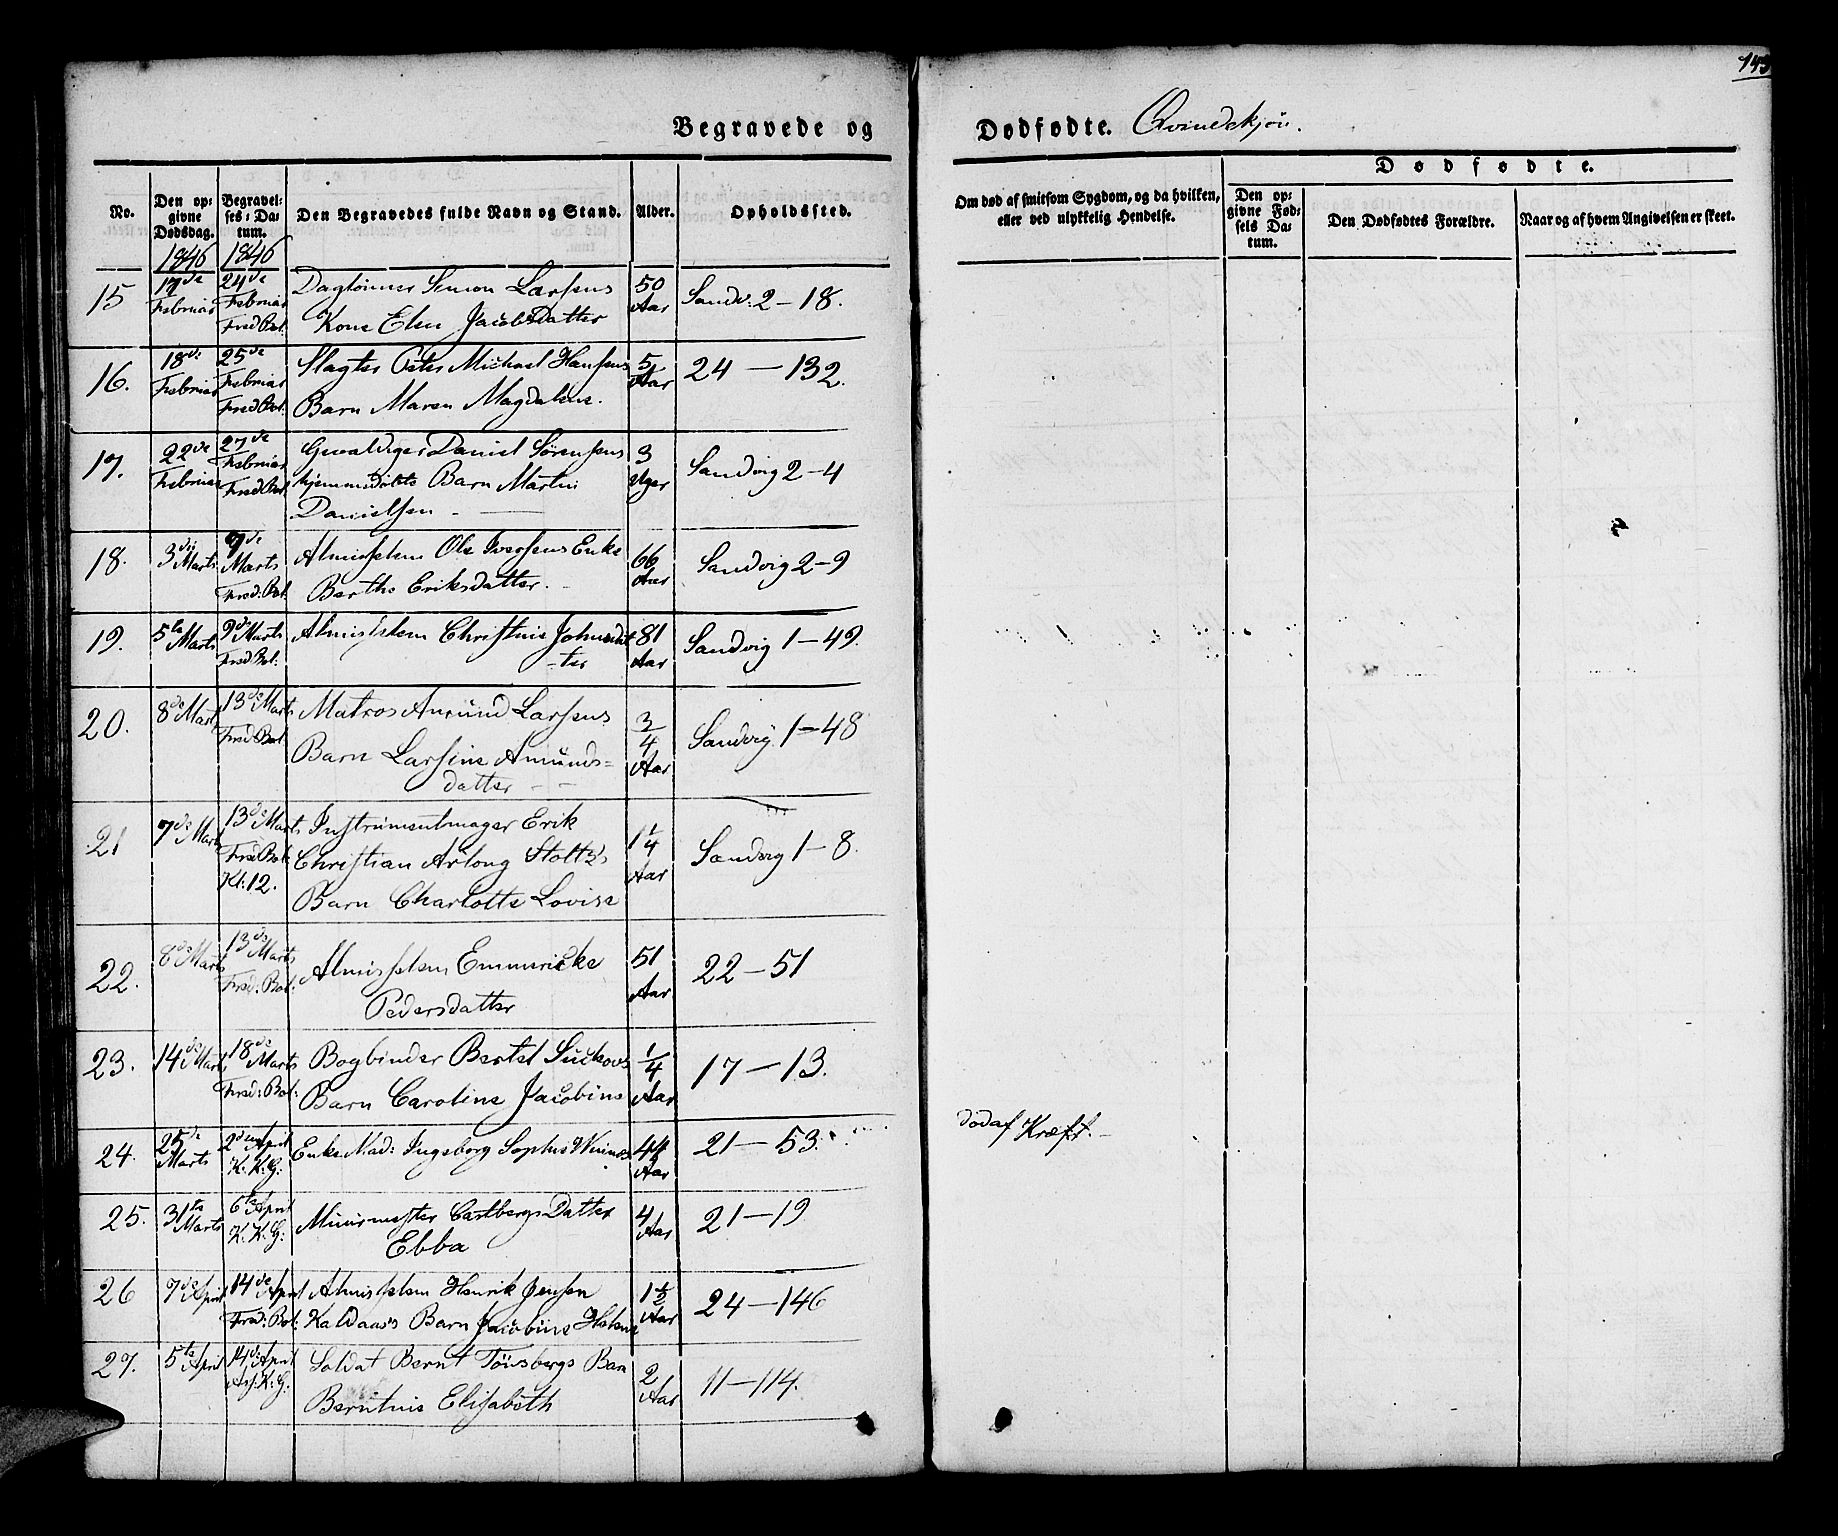 143
Begravede og Dødfødte. Qvindekjøn.
No.
Den op-
givne
Dødsdag.
Begravel-
ses-Da-
tum.
Den Begravedes fulde Navn og Stand.
Alder.
Opholdssted.
Om død af smitsom Sygdom, og da hvilken,
eller ved ulykkelig Hendelse.
Dødfødte.
Den op-
givne Fød-
sels Da-
tum.
Den Dødfødtes Forældre.
Naar og af hvem Angivelsen er skeet.
1846 1846
15 17de Februar 24de Februar Fred Bol: Dagløinner Simon Larsens 50 Aar Sandv: 2-18.
Kone Elen Jacobsdatter
16. 18de Februar 25de Februar Fred Bol: Slagter Peter Michael Hansens 5 Aar 24-132.
Barn Maren Magdalene.
17. 22de Februar 27de Februar Fred Bol: Gevaldiger Daniel Sörensens 3 Uger Sandvig 2-4
hjemmedøbte Barn Martin
Danielsen -
18. 3die Marts 7de Marts Fred: Bol: Almisselem Ole Iversens Enke 66 Aar Sandvig 2-9
Berthe Eriksdatter.
19. 5te Marts 9de Marts Fred Bol: Almisselem Christine Johnsdat 81 Aar Sandvig 1-49.
-ter
20. 8de Marts 13de Marts Fred: Bol: Matros Amund Larsens 3/4 Aar Sandvig 1-48
Barn Larsine Amunds=
datter - -
21 7de Marts 13de Marts Fred Bol: Kl: 12. Instrumentmager Erik 1 1/4 Aar Sandvig 1-8.
Christian Stoltz's
Barn Charlotte Lovise
22. 8de Marts 13de Marts Fred: Bol: Almisselem Emmericke 51 Aar 22-51
Pedersdatter
23. 14de Marts 18de Marts Fred: Bol: Bogbinder Bertel Suckows 1/4 Aar 17-13.
Barn Caroline Jacobine
24. 25de Marts 2den April K. K. G: Enke Mad: Ingeborg Sophie 44 Aar 21-53. død af Kræft.-
25. 31te Marts 6te April K. K. G: Carlbergs Datter 4 Aar 21-19
Ebba
26 7de April 14de April Fred: Bol: Almisselem Henrik Jensen 1 1/2 Aar 24-146
Kaldaas's Barn Jacobine Helene
27. 5te April 14de April K: G: Soldat Bernt Tönsbergs Barn 2 Aar 11-114.
Berntine Elisabeth